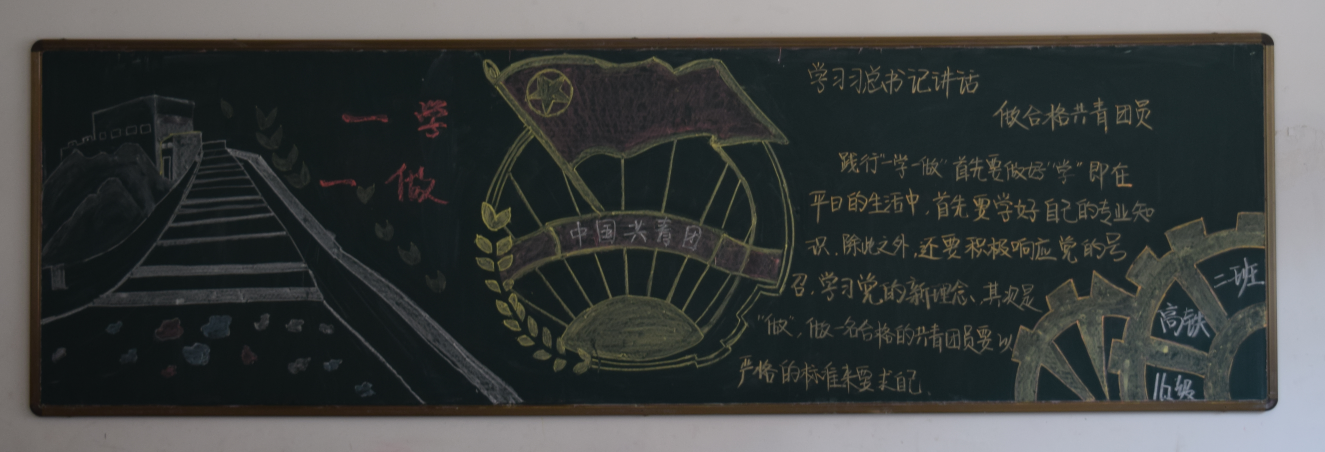 一学
一做
中国共青团
学习习总书记讲话
做合格共青团员
践行"一学一做"首先要做好"学"即在
平日的生活中,首先要学好自己的专业知
识,除此之外,还要积极响应党的号
召,学习党的新理念、其次是
"做",做一名合格的共青团员要以
严格的标准来要求自己.
二班
高铁
级